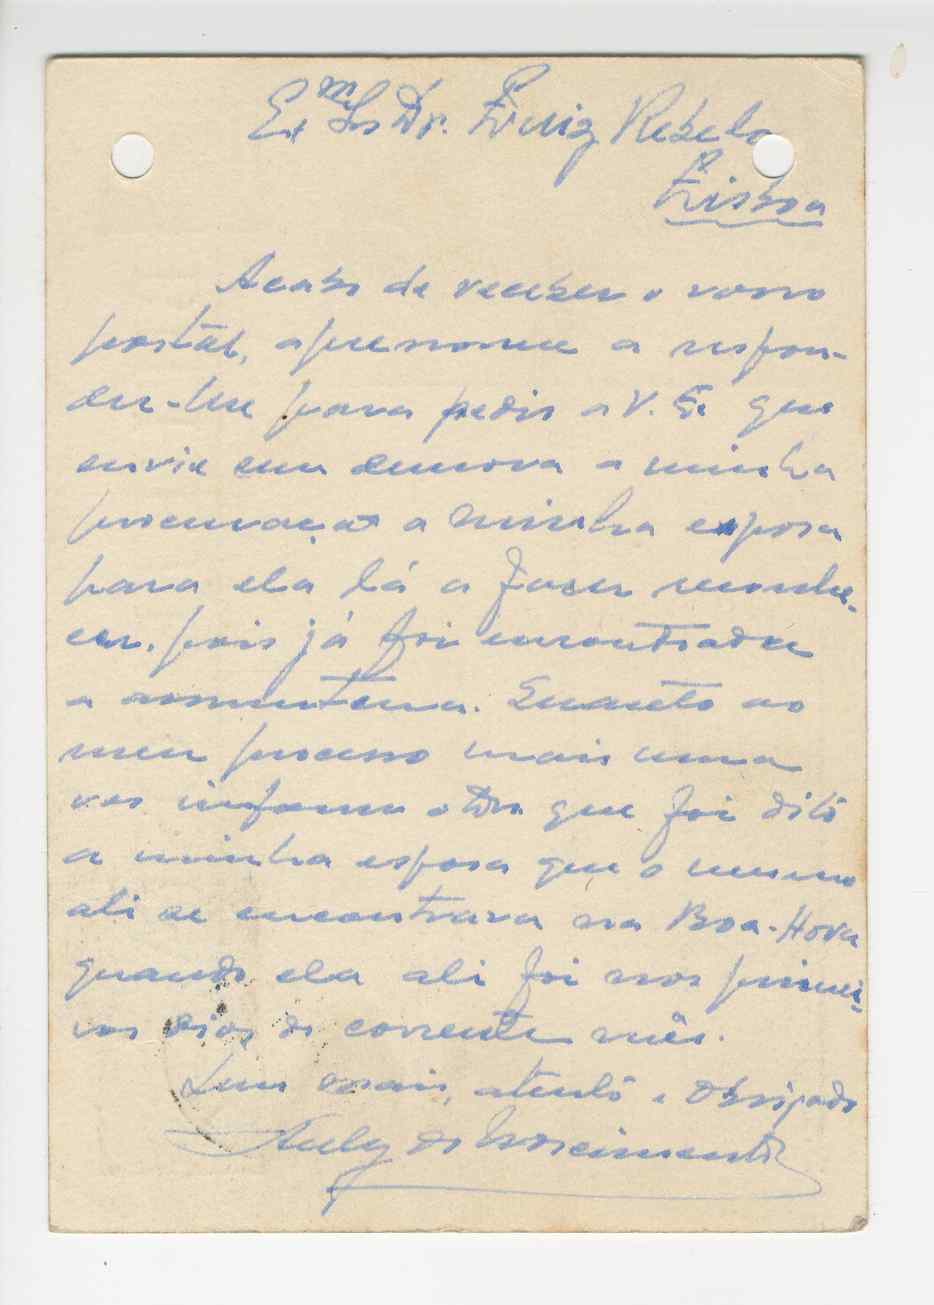 Exmo Sr Dr. Luiz Rebelo
Lisboa
Acabo de receber o vosso
postal, apresso-me a respon-
der-lhe para pedir a V. Ex que
envie sem demora a minha
procuração a minha esposa
para ela lá a fazer reconhe-
cer, pois já foi encontrada
a assinatura. Quanto ao
meu processo mais uma
ves informo o Dr. que foi dito
a minha esposa que o mesmo
ali se encontrava na Boa-Hora
quando ela ali foi nos primei-
ros dias do corrente mês.
Sem mais, atento e Obrigado
do Nascimento